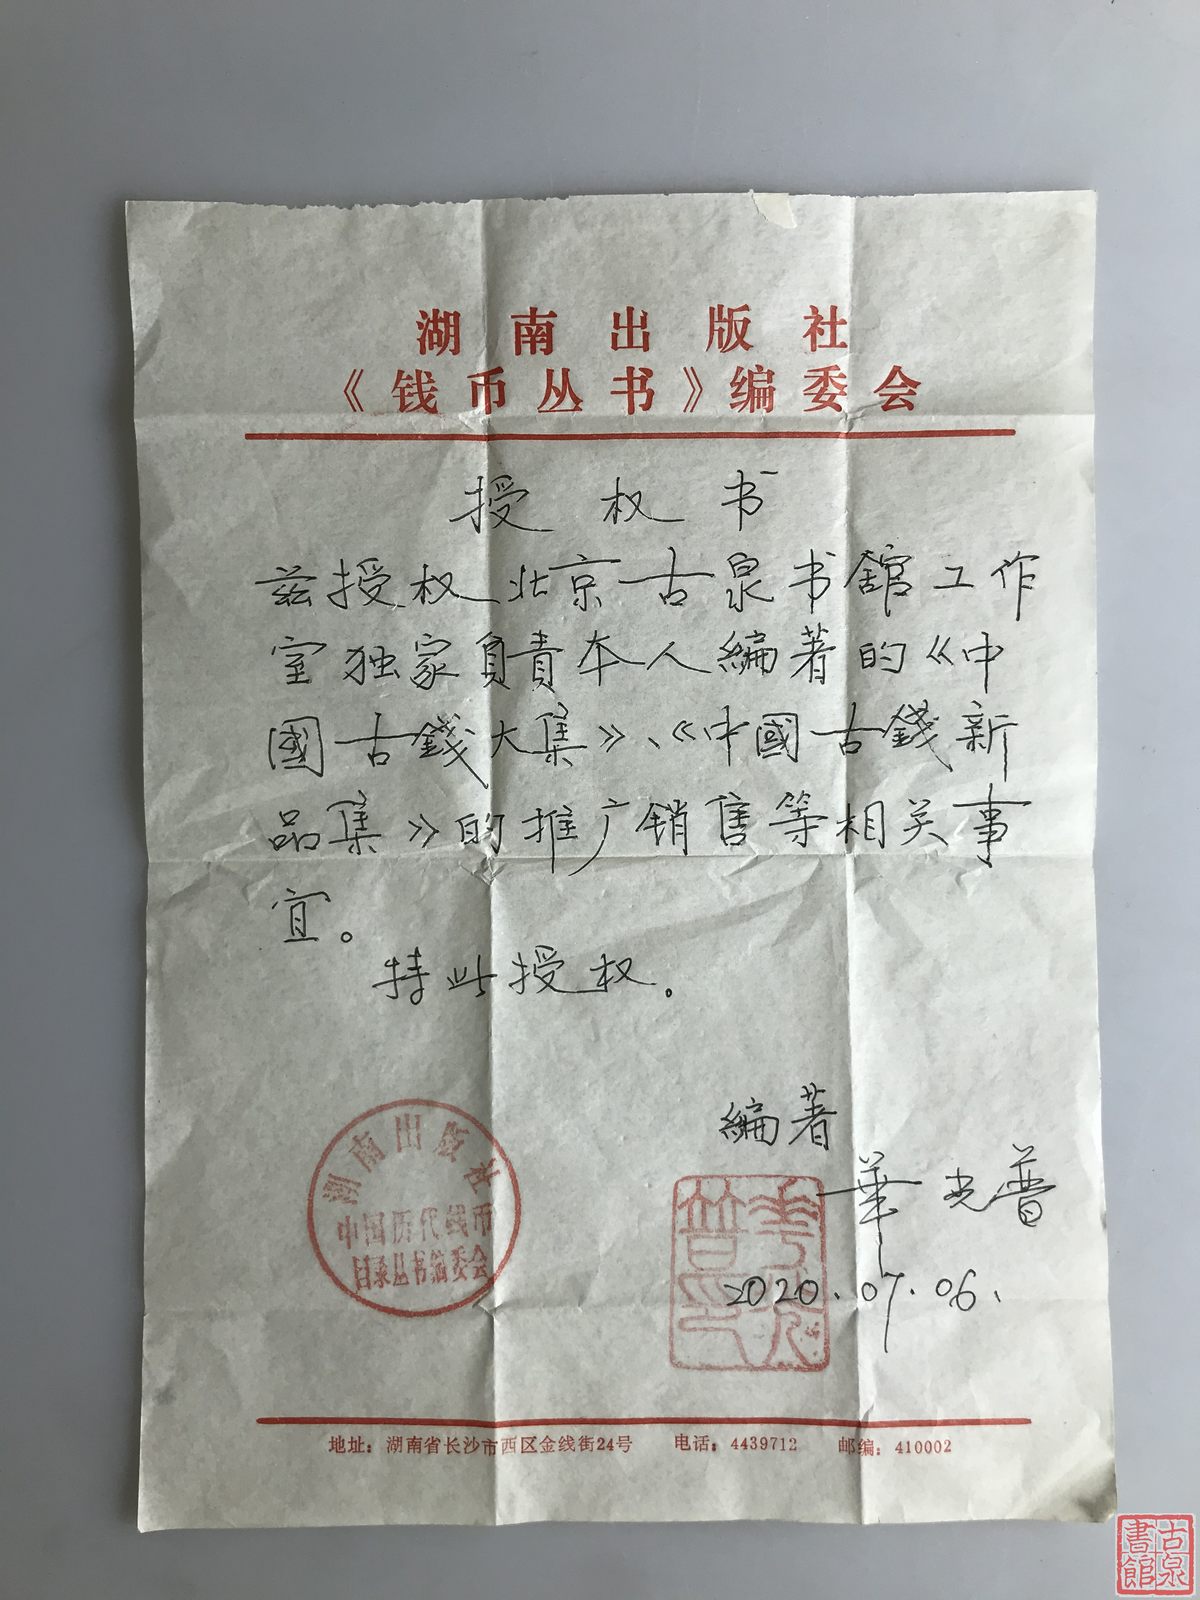 湖南出版社
《钱币丛书》编委会
授权书
兹授权北京古泉书館工作
室独家負責本人編著的《中
國古錢大集》、《中國古錢新
品集》的推广销售等相关事
宜。
特此授权。
編著
華光普
2020.07.06.
湖南出版社
中国历代钱币
目录丛书编委会
華光普印
地址：湖南省长沙市西区金线街24号 电话：4439712 邮编：410002
古泉
書館